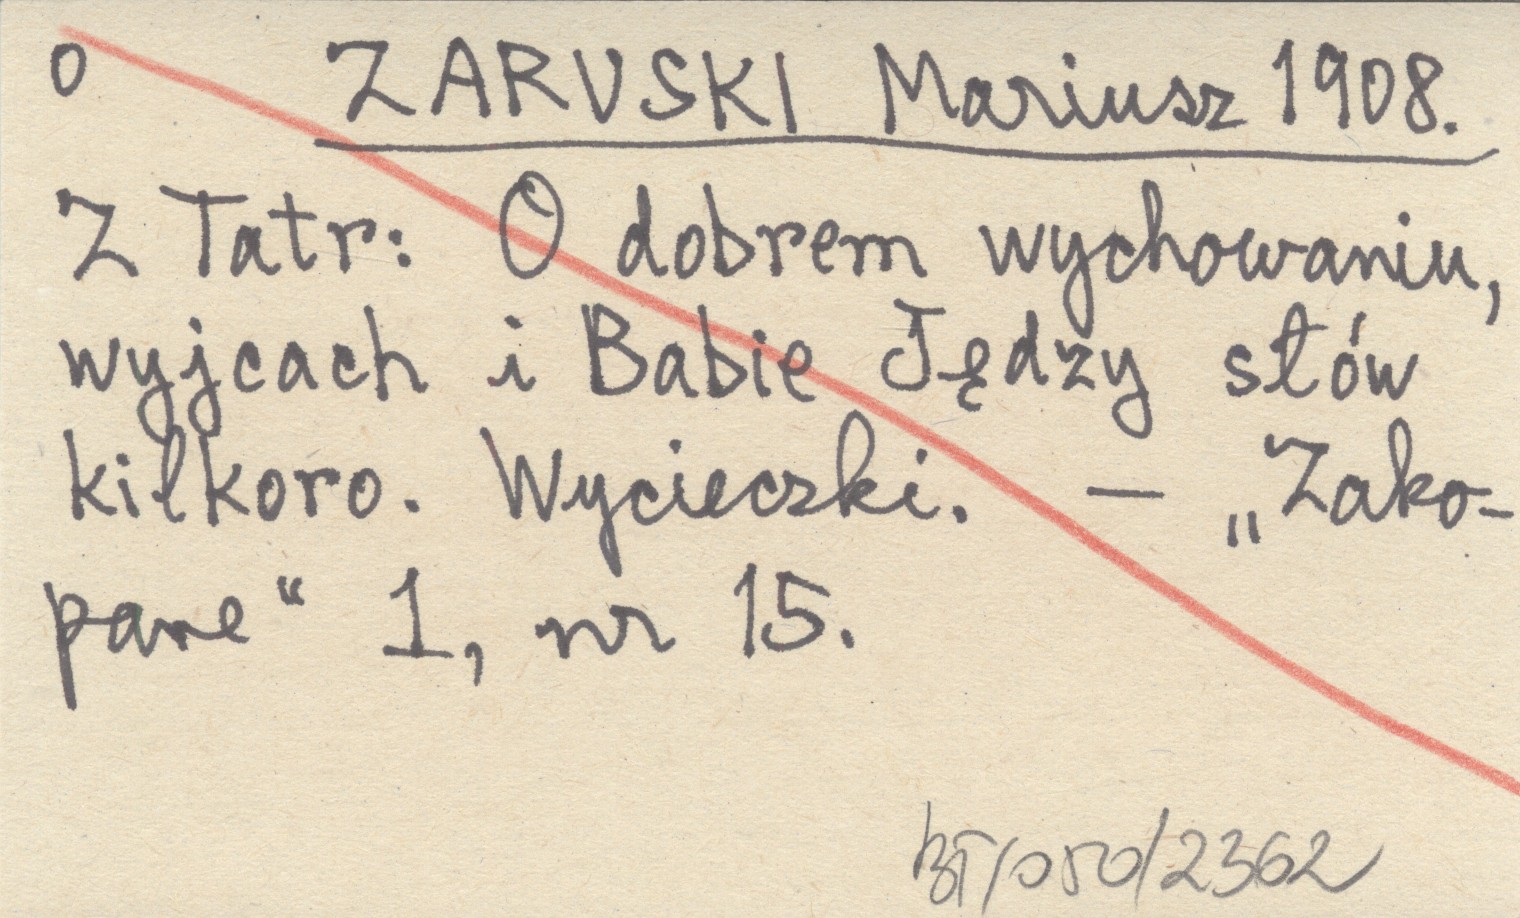 o ZARUSKI Mariusz 1908.
Z Tatr: O dobrem wychowaniu,
wyjcach i Babie Jędzy słów
kilkoro. Wycieczki. — „Zako-
pane“ 1, nr 15.
bT/oso/2362